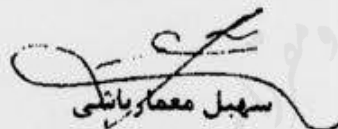 سهیل معمارباشی